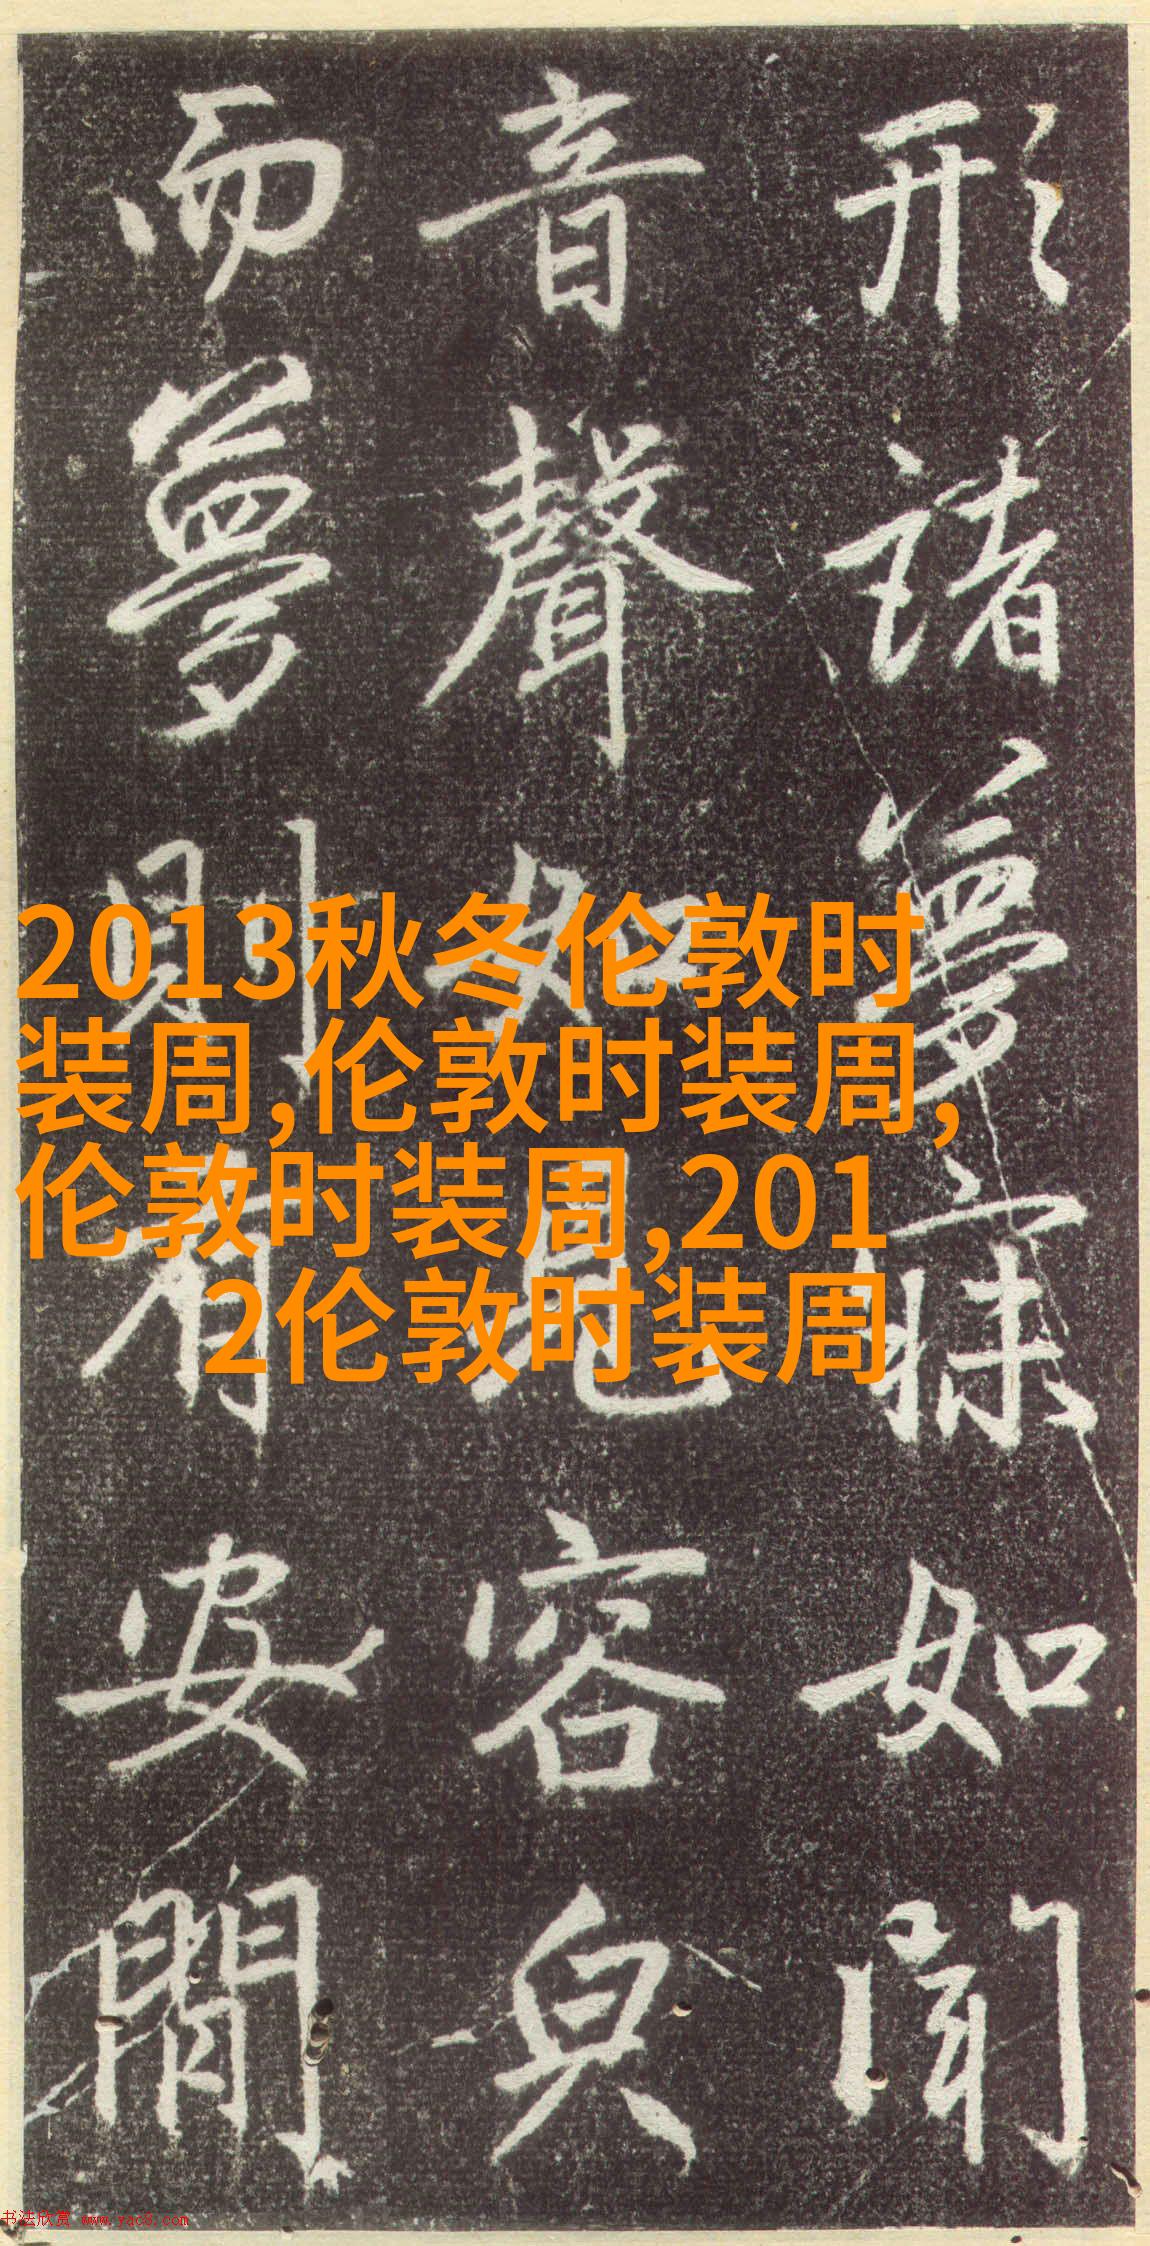 形諸夢寐如聞
音聲如見容皃
而夢則有安閒
2013秋冬伦敦时
装周,伦敦时装周,
伦敦时装周,201
2伦敦时装周
书法欣赏 www.yac8.com